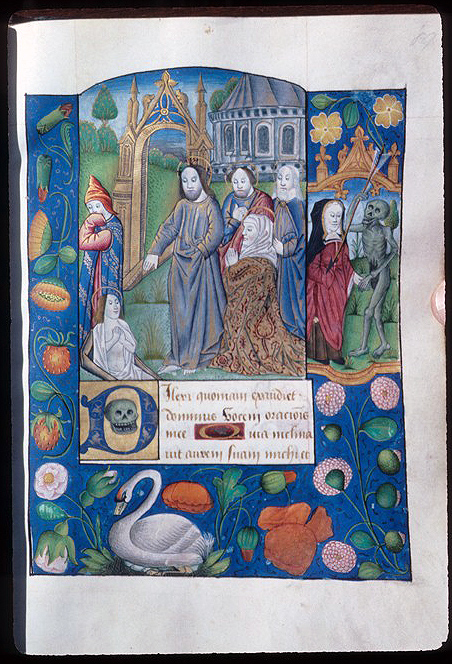 Dilexi quoniam exaudiet
dominus Vocem oracionis
mee Quia inclina
uit aurem suam michi et